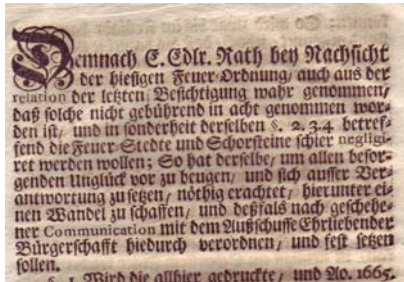 Demnach E. Edlr. Rath bey Nachsicht
der hiesigen Feuer-Ordnung/ auch aus der
relation der letzten Besichtigung wahr genommen/
daß solche nicht gebührend in acht genommen wor-
den ist/ und in sonderheit derselben §. 2. 3. 4 betref-
fend die Feuer-Stedte und Schorsteine schier negligi-
ret werden wollen; So hat derselbe/ um allen besor-
genden Unglück vor zu beugen/ und sich ausser Ver-
antwortung zu setzen/ nöthig crachtet/ hierunter ei-
nen Wandel zu schaffen/ und deßfals nach geschehe-
ner Communication mit dem Außschusse Ehrliebender
Bürgerschafft hiedurch verordnen/ und fest setzen
sollen.
§. 1. Wird die allhier gedruckte/ und Ao. 1665.